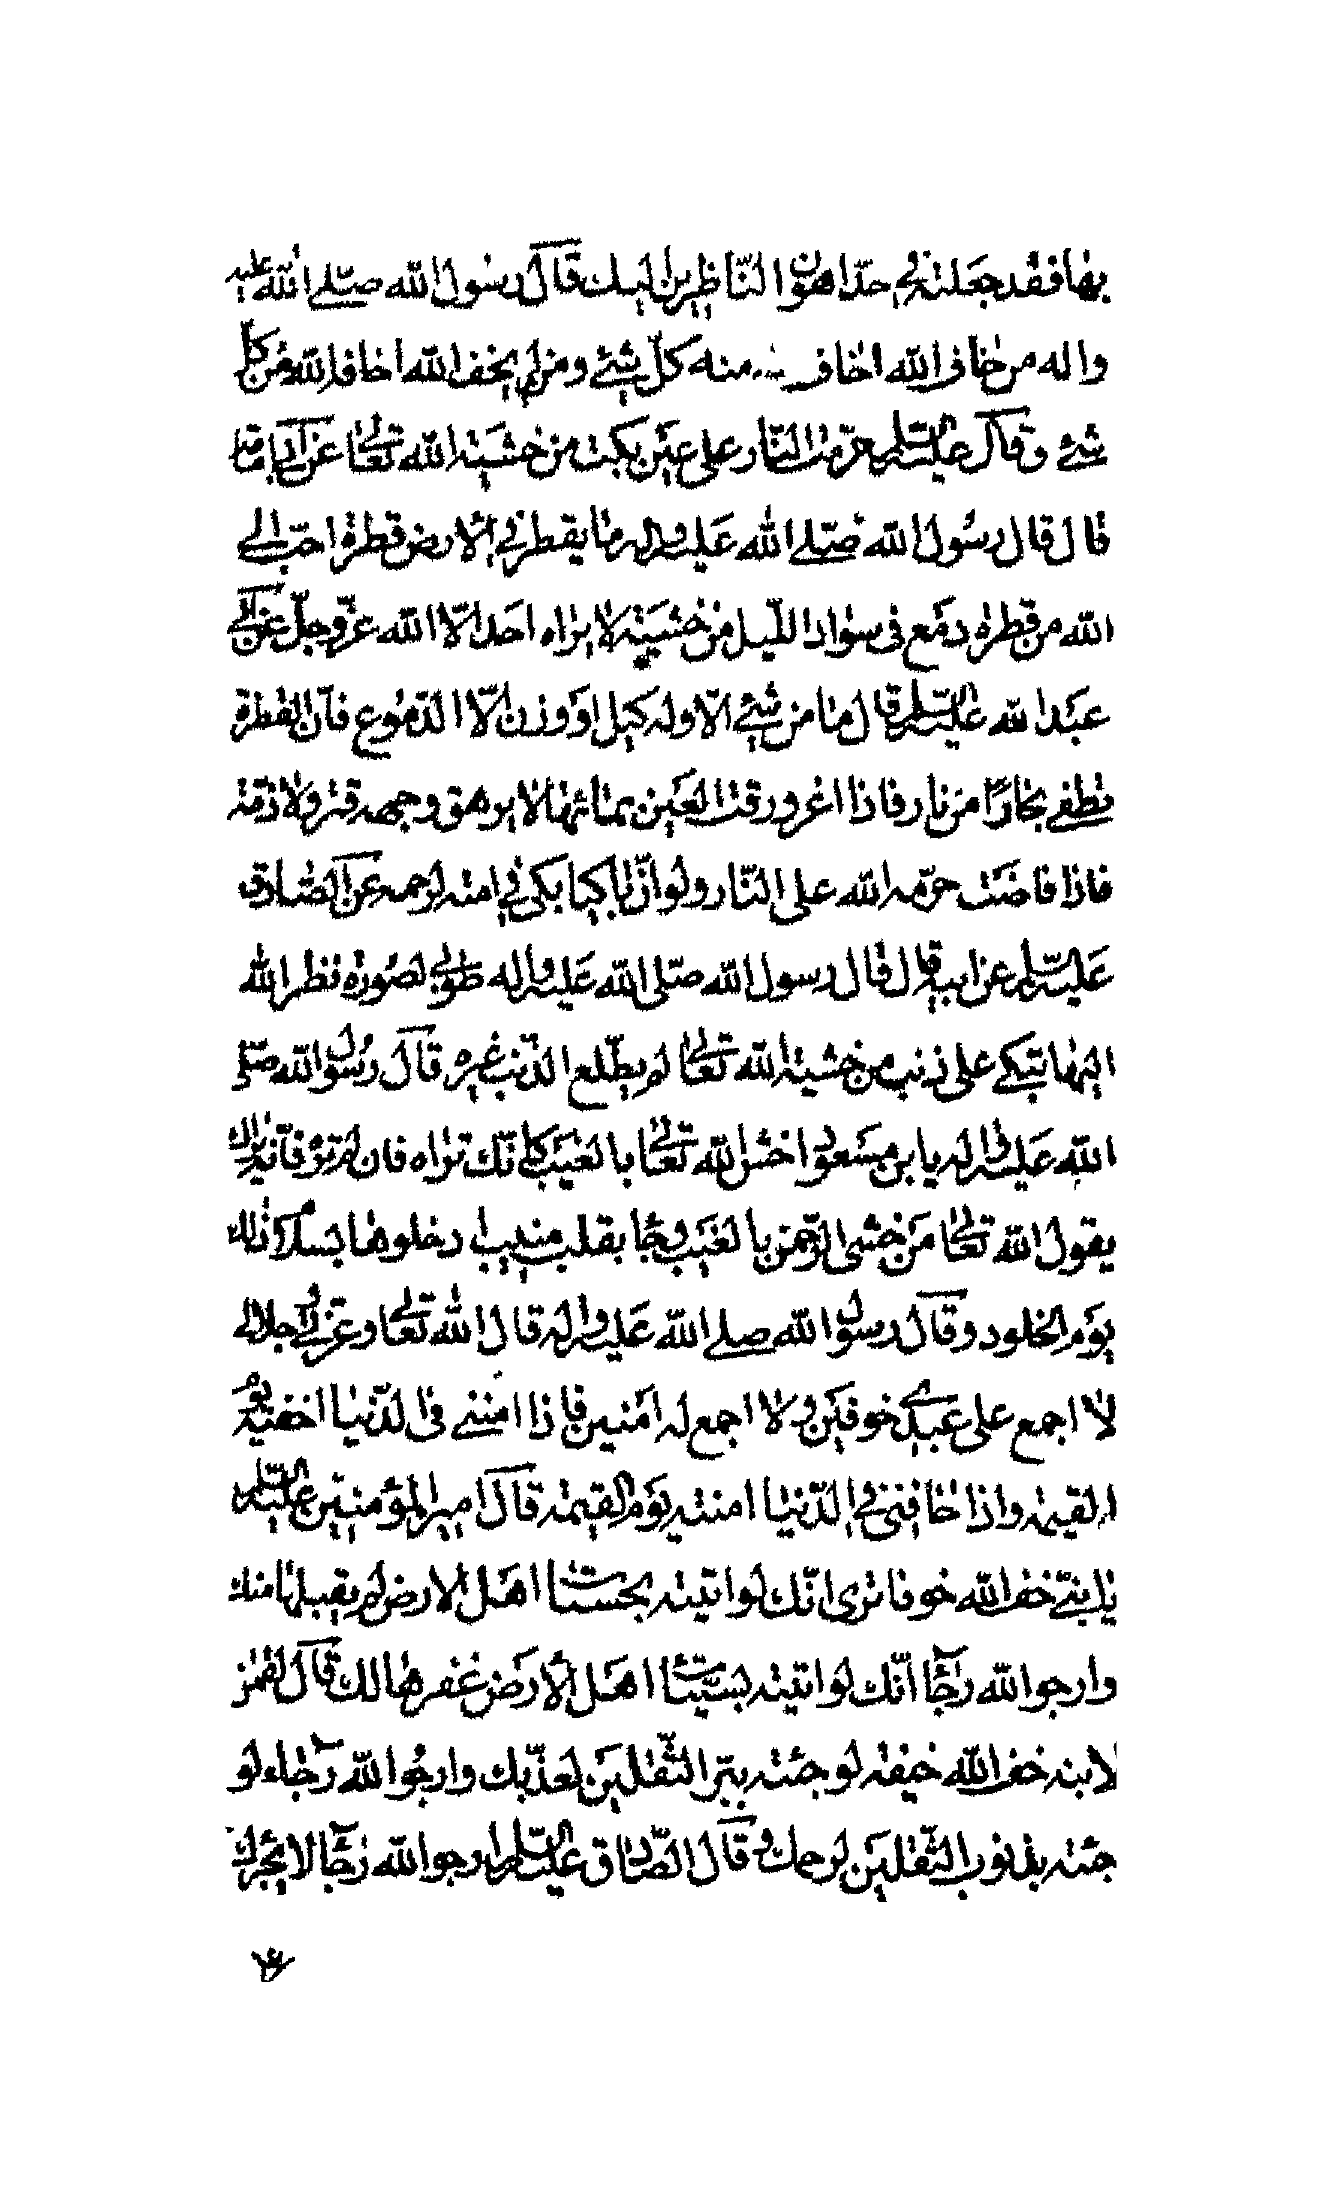 بها فقد جعلته في حدّ اهون النّاظرين اليك قال رسول الله صلّى الله عليه
واله من خاف الله اخاف منه كلّ شيئ ومن لم يخف الله اخافه الله من كل
شيئ وقال عليه السّلم حرّمت النّار على عين بكت من خشية الله تعالى عن الباقر
قال قال رسول الله صلّى الله عليه واله ما يقطر في الارض قطرة احبّ الى
الله من قطرة دمع في سواد اللّيل من خشيته لا يراه احد الّا الله عزّ وجلّ عن ابي
عبد الله عليه السّلم قال ما من شيئ الّا وله كيل او وزن الّا الدّموع فانّ القطرة
تطفي بحارًا من نار فاذا اغرورقت العين بمائها لا يرهق وجهه قتر ولا ذلة
فاذا فاضت حرّمه الله على النّار ولو انّ باكيا بكى في امته لرحمه عن الصّادق
عليه السّلم عن ابيه قال قال رسول الله صلّى الله عليه واله طوبى لصورة نظر الله
اليها تبكي على ذنب من خشية الله تعالى لم يطّلع الذّنب غيره قال رسول الله صلّى
الله عليه واله يا بن مسعود اخش الله تعالى بالغيب كانّك تراه فان لم تره فانّه يراك
يقول الله تعالى من خشي الرّحمن بالغيب وجاء بقلب منيب ادخلوها بسلام ذلك
يوم الخلود وقال رسول الله صلى الله عليه واله قال الله تعالى وعزّتي وجلالي
لا اجمع على عبدي خوفين ولا اجمع له امنين فاذا امنني في الدّنيا اخفته يوم
القيمة واذا خافني في الدّنيا امنته يوم القيمة قال امير المؤمنين عليه السّلم
يا بنيّ خف الله خوفا ترى انّك لو اتيته بحسنات اهل الارض لم يقبلها منك
وارجو الله رجاء انّك لو اتيته بسيّئات اهل الارض غفرها لك قال لقمن
لابنه خف الله خيفة لو جئته ببرّ الثّقلين لعذّبك وارجو الله رجاء لو
جئته بذنوب الثّقلين لرحمك وقال الصّادق عليه السّلم ارجو الله رجاء لا يجرئك